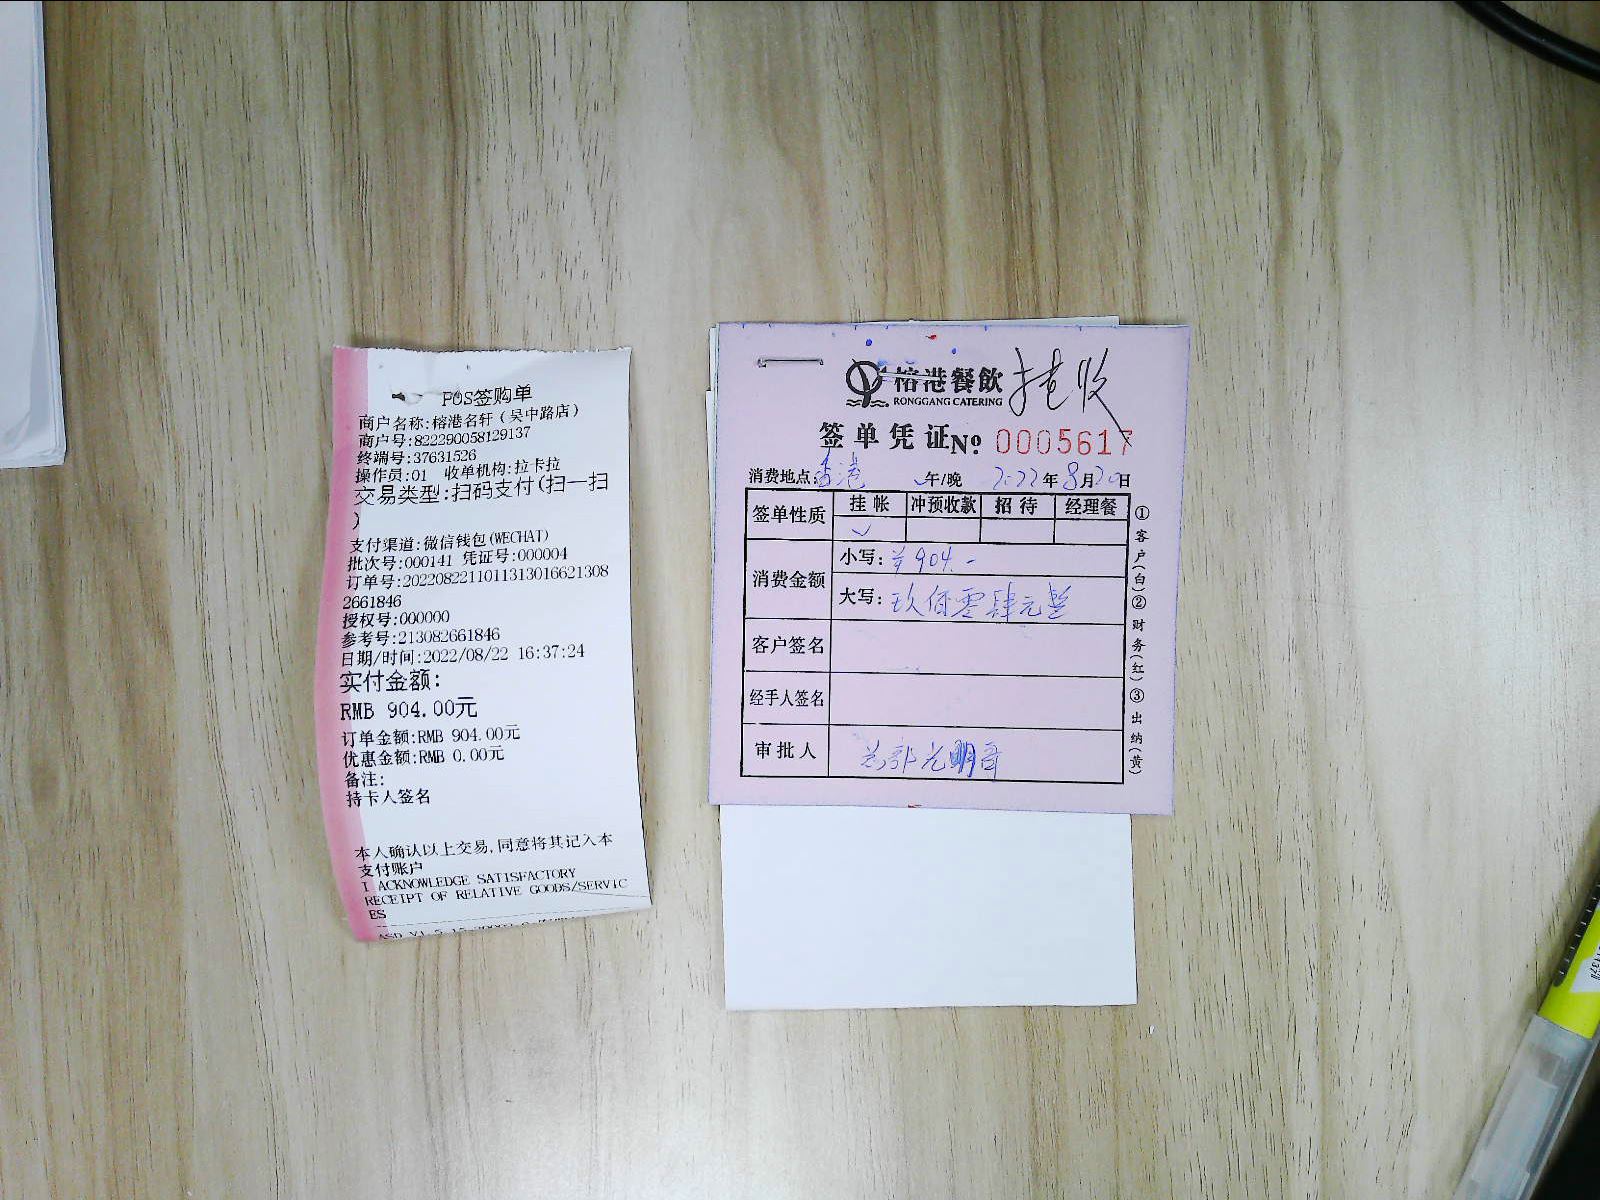 POS签购单
商户名称:榕港名轩(吴中路店)
商户号:822290058129137
终端号:37631526
操作员:01 收单机构:拉卡拉
交易类型:扫码支付(扫一扫
)
支付渠道:微信钱包(WECHAT)
批次号:000141 凭证号:000004
订单号:20220822110113130166213​08
2661846
授权号:000000
参考号:213082661846
日期/时间:2022/08/22 16:37:24
实付金额:
RMB 904.00元
订单金额:RMB 904.00元
优惠金额:RMB 0.00元
备注:
持卡人签名
本人确认以上交易,同意将其记入本
支付账户
I ACKNOWLEDGE SATISFACTORY
RECEIPT OF RELATIVE GOODS/SERVIC
ES
榕港餐飲 挂收
RONGGANG CATERING
签单凭证 No. 0005617
消费地点:香港 午/晚 2022年8月20日
签单性质 挂帐 冲预收款 招待 经理餐
消费金额 小写:¥904.-
大写:玖佰零肆元整
客户签名
经手人签名
审批人 总部光明哥
①客户(白)②财务(红)③出纳(黄)